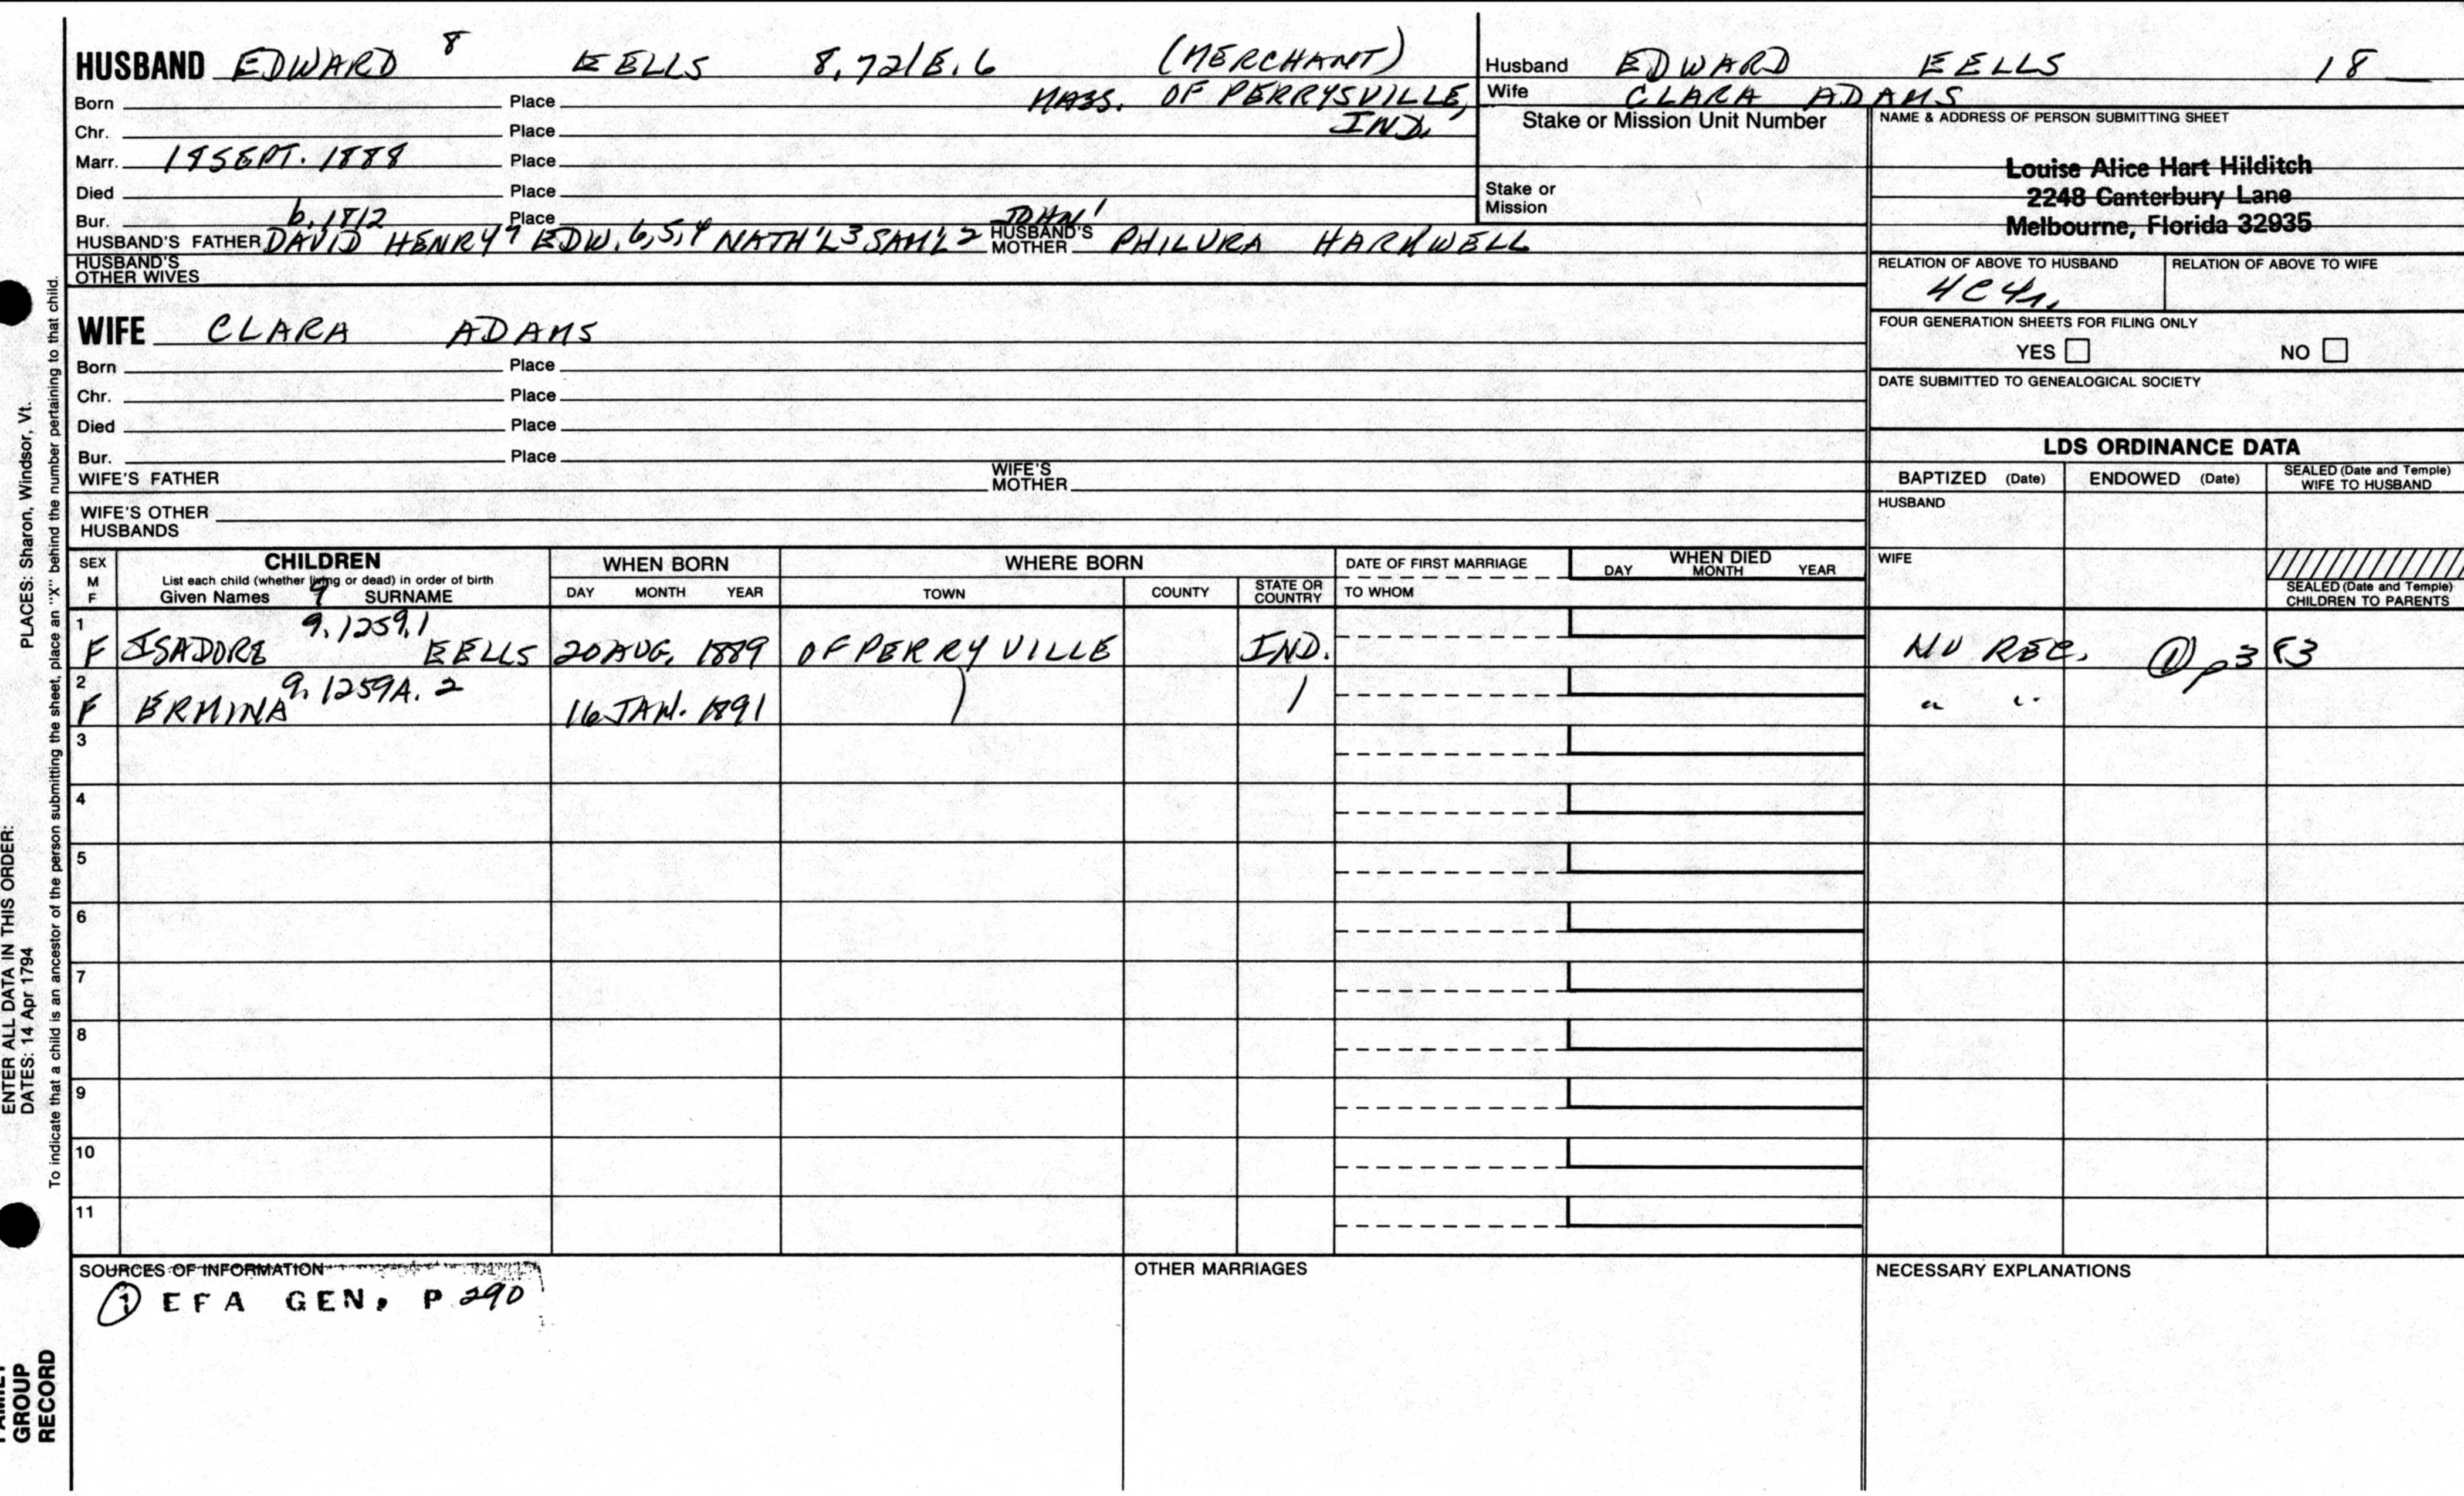 HUSBAND EDWARD 8 EELLS 8,721E.6 (MERCHANT)
Born Place MASS. OF PERRYSVILLE,
Chr. Place IND.
Marr. 18 SEPT. 1888 Place
Died Place
Bur. b. 1812 Place JOHN 1
HUSBAND'S FATHER DAVID HENRY 7 EDW. 6,5,4 NATH'L 3 SAM'L 2 HUSBAND'S MOTHER PHILURA HARKWELL
HUSBAND'S OTHER WIVES
Husband EDWARD EELLS 18
Wife CLARA ADAMS
Stake or Mission Unit Number
Stake or Mission
NAME & ADDRESS OF PERSON SUBMITTING SHEET
Louise Alice Hart Hilditch
2248 Canterbury Lane
Melbourne, Florida 32935
RELATION OF ABOVE TO HUSBAND RELATION OF ABOVE TO WIFE
4C4r.
FOUR GENERATION SHEETS FOR FILING ONLY
YES NO
DATE SUBMITTED TO GENEALOGICAL SOCIETY
WIFE CLARA ADAMS
Born Place
Chr. Place
Died Place
Bur. Place
WIFE'S FATHER WIFE'S MOTHER
WIFE'S OTHER HUSBANDS
LDS ORDINANCE DATA
BAPTIZED (Date) ENDOWED (Date) SEALED (Date and Temple) WIFE TO HUSBAND
HUSBAND
WIFE
SEALED (Date and Temple) CHILDREN TO PARENTS
SEX M F
CHILDREN
List each child (whether living or dead) in order of birth
Given Names 9 SURNAME
WHEN BORN
DAY MONTH YEAR
WHERE BORN
TOWN COUNTY STATE OR COUNTRY
DATE OF FIRST MARRIAGE
TO WHOM
WHEN DIED
DAY MONTH YEAR
1 9.1259.1
F ISADORE EELLS 20 AUG. 1889 OF PERRYVILLE IND. NO REC. ① p383
2 9.1259A.2
F ERMINA 16 JAN. 1891 " "
3
4
5
6
7
8
9
10
11
SOURCES OF INFORMATION
① EFA GEN. P 290
OTHER MARRIAGES
NECESSARY EXPLANATIONS
ENTER ALL DATA IN THIS ORDER:
DATES: 14 Apr 1794 PLACES: Sharon, Windsor, Vt.
To indicate that a child is an ancestor of the person submitting the sheet, place an "X" behind the number pertaining to that child.
GROUP
RECORD